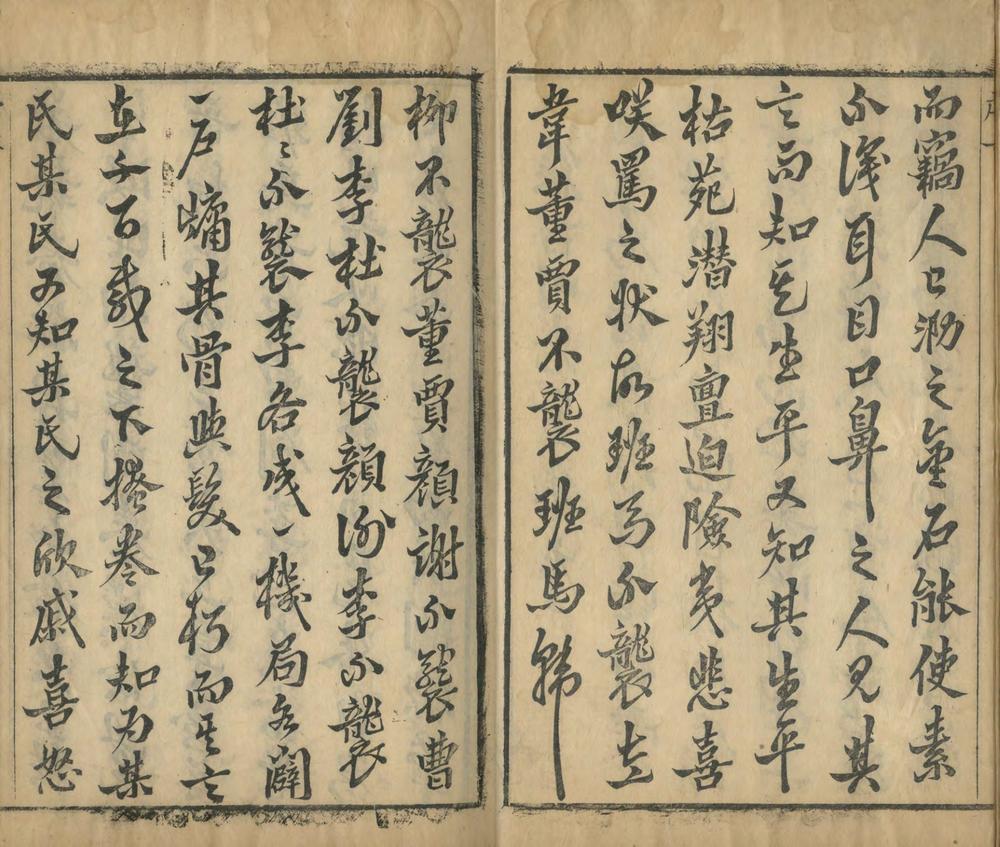 而竊人已泐之金石能使素
不識耳目口鼻之人見其
言而知其生平又知其生平
枯菀潛翔亶迫險夷悲喜
咲罵之狀故班馬不襲左
韋董賈不襲班馬韓
柳不襲董賈顏謝不襲曹
劉李杜不襲顏謝李不襲
杜〻不襲李各成一機局各闢
一戶牖其骨與髮已朽而其言
在千百載之下捲卷而知為某
氏某氏又知某氏之欣戚喜怒